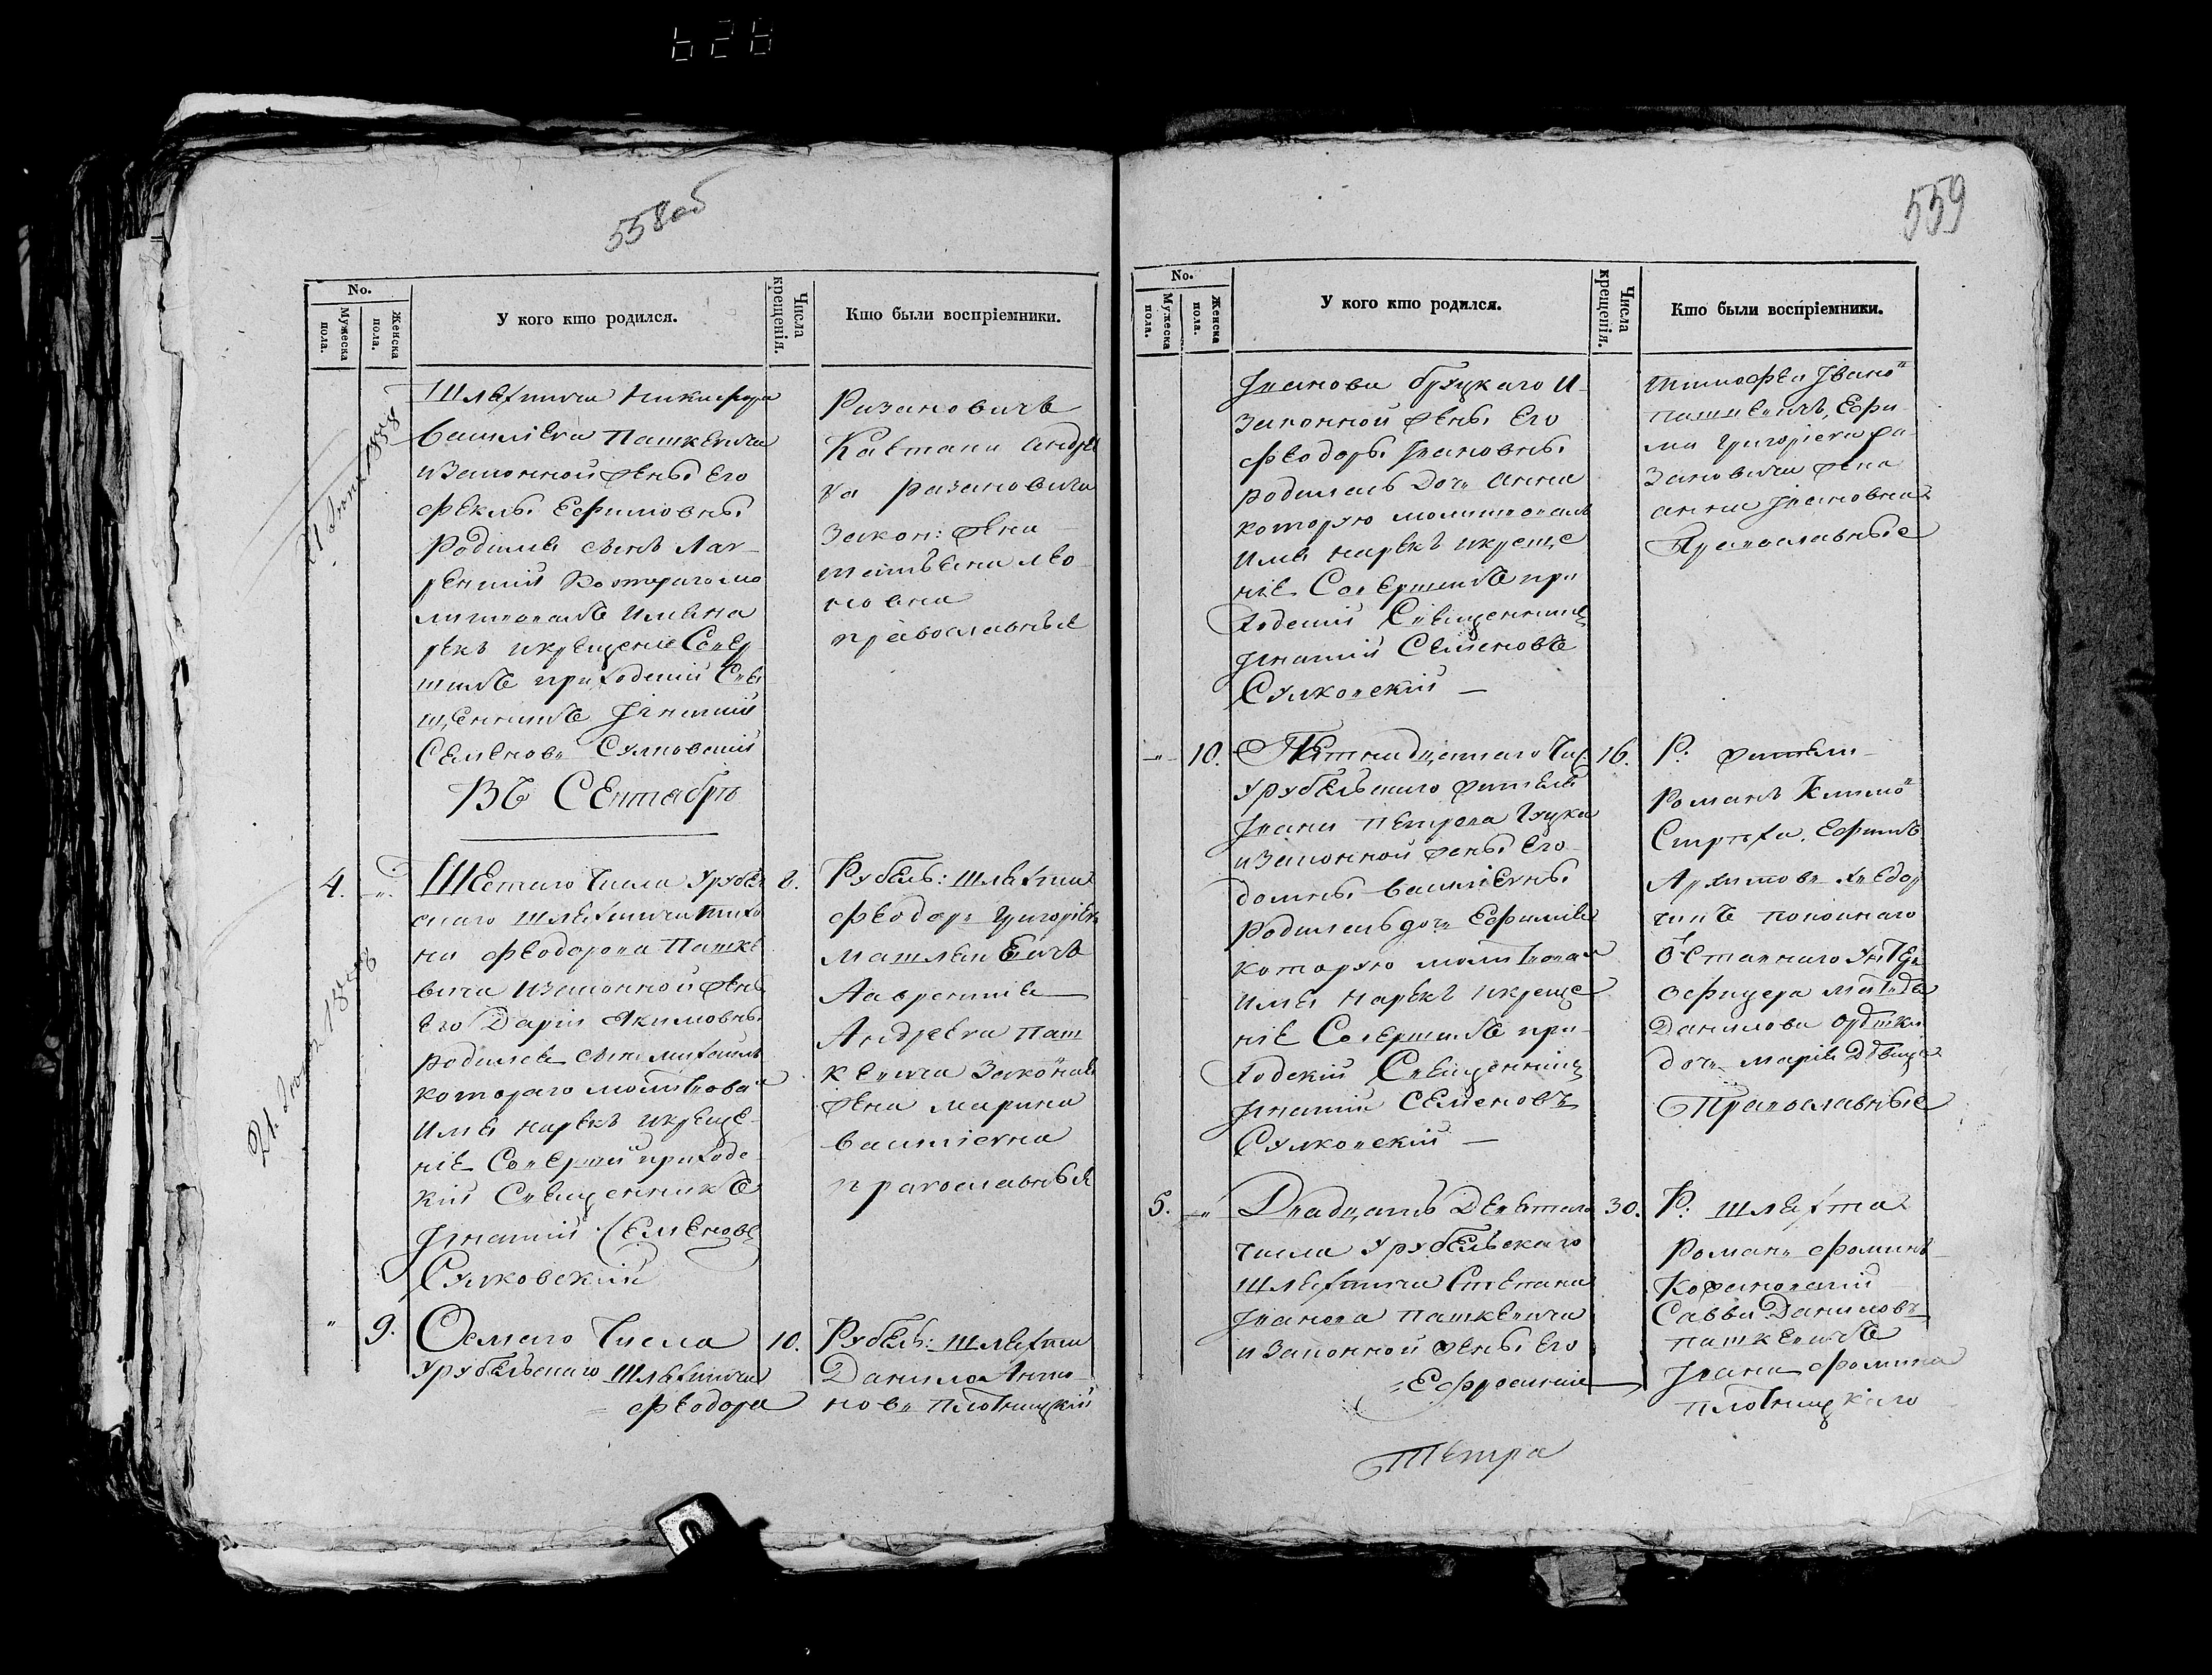 558об
No.
Мужеска пола.
Женска пола.
У кого кто родился.
Числа крещенія.
Кто были воспріемники.
Шляхтича Никифора
Василіева Пашкевича
и Законной жены Его
Феклы Ефимовны
родился сынъ Лав-
рентий Котораго мо
литвовалъ Имя на
рекъ и крещеніе Совер
шилъ приходский Свя
щенникъ Игнатий
Семеновъ Сулковский
Въ Сентабрю
Разановичъ
Каетана Андре
ва Разановича
Закон: жена
Татьяна Лео
новна
православныя
4. Шестаго Числа Урубел
скаго шляхтича Тихо
на Феодорова Пашке
вича и Законной жены
Его Даріи Якимовны
родился сынъ Михаилъ
котораго молитвовал
Имя нарекъ и креще
ніе Соверши приходс
кій Священникъ
Игнатий Семеновъ
Сулковский
8. Рубель: шляхтич
Феодоръ Григоріев
Лаврентия
Андреева Паш
кевича Законная
жена Марина
Василіевна
православныя
9. Осмаго Числа
Урубельскаго Шляхтича
Феодора
10. Рубель: шляхтич
Данило Анто
новъ Плотницкій
559
No.
Мужеска пола.
Женска пола.
У кого кто родился.
Числа крещенія.
Кто были воспріемники.
Іванова Груцкаго и
Законной жены Его
Феодоры Івановны
родилась Дочь Анна
которую молитвовалъ
Имя нарекъ и креще
ніе Совершилъ при
ходский Священник
Игнатий Семеновъ
Сулковский
Тимофей Івано
Пашкевичъ, Ефи
ма Григоріева Ра
зановича жена
Анна Івановна
Православныя
10. Пятнадцатаго Чис.
Урубельскаго жителя
Івана Петрова Гуцка
и Законной жены Его
Домны Василіевны
родилась дочь Ефимія
которую молитвовал
Имя нарекъ и креще
ніе Совершилъ при
ходскій Священник
Игнатий Семеновъ
Сулковский
16. Р. жители
Романъ Климо
покойнаго
Отставнаго Унтер
Офицера
Данилова
дочь Марія Девица
Православныя
5. Двадцать Девятаго
Числа Урубельскаго
Шляхтича Степана
Іванова Пашкевича
и Законной жены Его
Ефросиніи
30. Р: шляхта
Романъ Фоминъ
Савва Даниловъ
Пашкевичъ
Івана Фомина
Плотницкаго
Петра